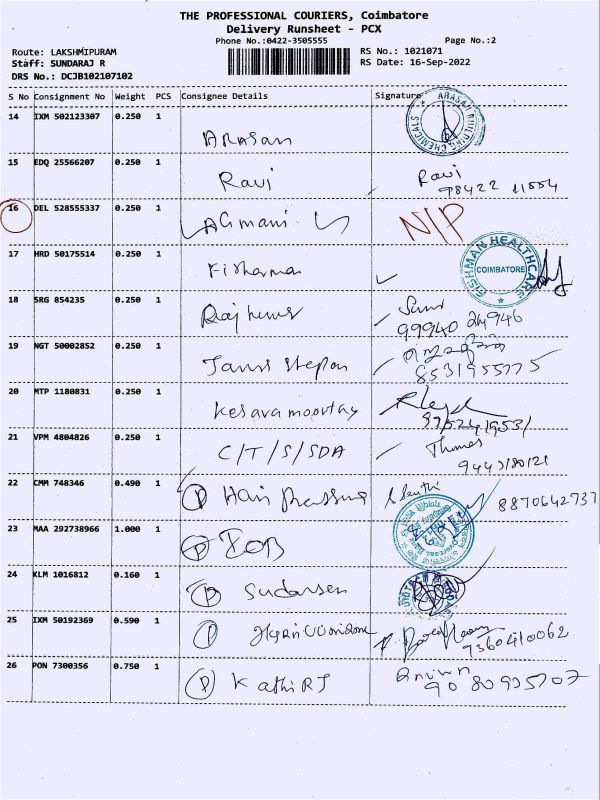 THE PROFESSIONAL COURIERS, Coimbatore
Delivery Runsheet - PCX
Phone No.:0422-3505555 Page No.:2
Route: LAKSHMIPURAM RS No.: 1021071
Staff: SUNDARAJ R RS Date: 16-Sep-2022
DRS No.: DCJB102107102
S No Consignment No Weight PCS Consignee Details Signature
14 IXM 502123307 0.250 1 ARASAN ARASAN BUILDING CHEMICALS
15 EDQ 25566207 0.250 1 Ravi Ravi
98422 11554
16 DEL 528555337 0.250 1 AGmani N/P
17 HRD 50175514 0.250 1 FISHMAN HEALTHCARE COIMBATORE
18 SRG 854235 0.250 1
99940 946
19 NGT 50002852 0.250 1
8531955775
20 MTP 1180831 0.250 1 Kesava moortay
21 VPM 4804826 0.250 1 C/T/S/SDA Thomas
9443180121
22 CMM 748346 0.490 1 P Hari 8870642737
23 MAA 292738966 1.000 1 P IOB
24 KLM 1016812 0.160 1 P Sudarsen
25 IXM 50192369 0.590 1 P
7360410062
26 PON 7300356 0.750 1 P Kathir